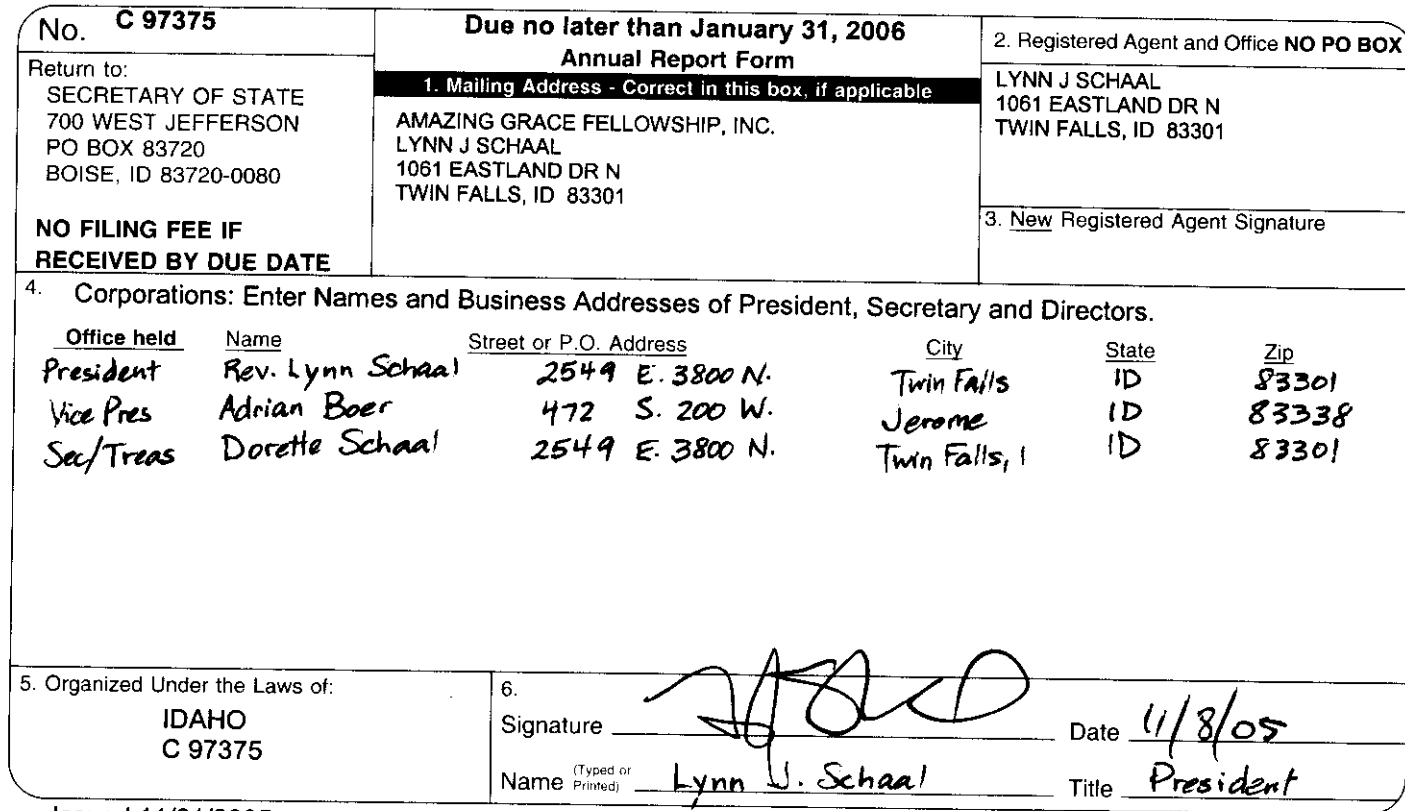 No. C 97375
Return to:
SECRETARY OF STATE
700 WEST JEFFERSON
PO BOX 83720
BOISE, ID 83720-0080
NO FILING FEE IF
RECEIVED BY DUE DATE
Due no later than January 31, 2006
Annual Report Form
1. Mailing Address - Correct in this box, if applicable
AMAZING GRACE FELLOWSHIP, INC.
LYNN J SCHAAL
1061 EASTLAND DR N
TWIN FALLS, ID 83301
2. Registered Agent and Office NO PO BOX
LYNN J SCHAAL
1061 EASTLAND DR N
TWIN FALLS, ID 83301
3. New Registered Agent Signature
4. Corporations: Enter Names and Business Addresses of President, Secretary and Directors.
Office held Name Street or P.O. Address City State Zip
President Rev. Lynn Schaal 2549 E. 3800 N. Twin Falls ID 83301
Vice Pres Adrian Boer 472 S. 200 W. Jerome ID 83338
Sec/Treas Dorette Schaal 2549 E. 3800 N. Twin Falls, I ID 83301
5. Organized Under the Laws of:
IDAHO
C 97375
6.
Signature Date 11/8/05
Name (Typed or Printed) Lynn J. Schaal Title President